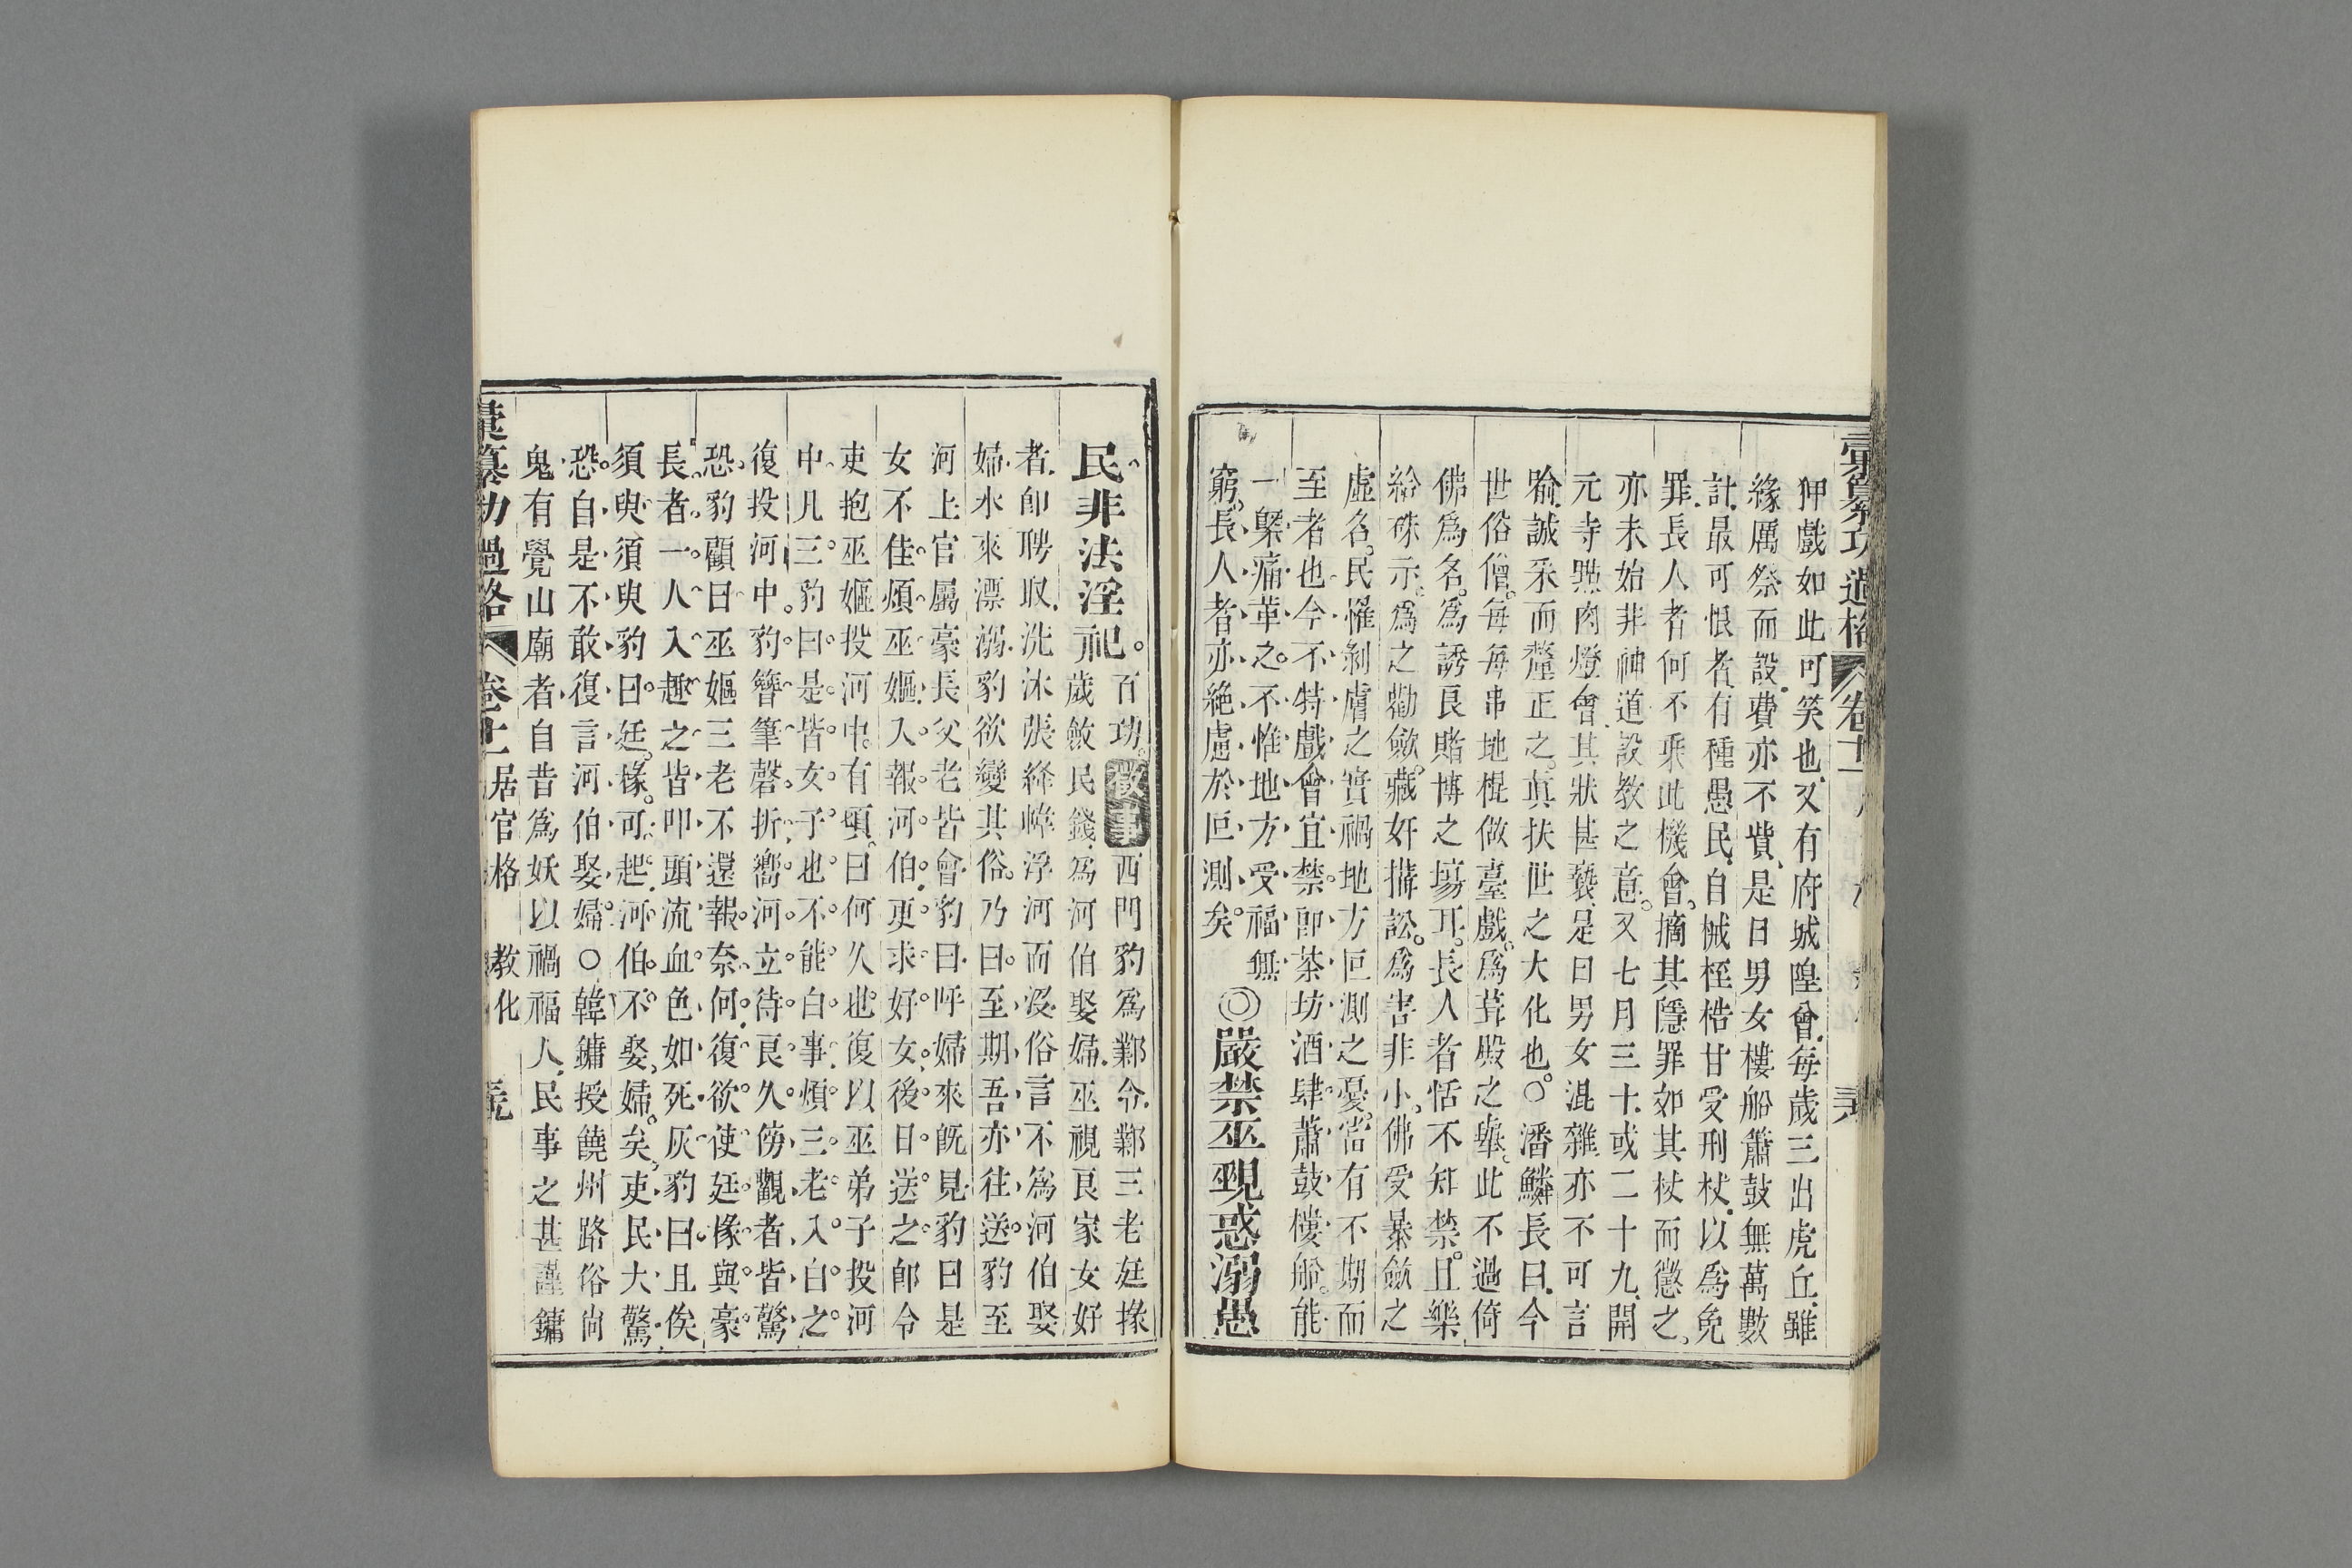 彙纂功過格 卷十一
狎戲如此可笑也又有府城隍會每歲三出虎丘雖
緣厲祭而設費亦不貲是日男女樓船簫鼓無萬數
計最可恨者有種愚民自械桎梏甘受刑杖以為免
罪長人者何不乘此機會摘其隱罪如其杖而懲之
亦未始非神道設教之意又七月三十或二十九開
元寺㸃肉燈會其狀甚褻是日男女混雜亦不可言
喻誠采而釐正之真扶世之大化也○潘鱗長曰今
世俗僧每每串地棍做臺戲為葺殿之舉此不過倚
佛為名為誘良賭博之塲耳長人者恬不知禁且樂
給硃示為之勸斂藏奸搆訟為害非小佛受暴斂之
虛名民罹剝膚之實禍地方叵測之憂常有不期而
至者也今不特戲會宜禁即茶坊酒肆蕭鼓樓船能
一槩痛革之不惟地方受福無
窮長人者亦絶慮於叵測矣
◎嚴禁巫覡惑溺愚
民非法淫祀
百功 徵事 西門豹為鄴令鄴三老廷掾
歲斂民錢為河伯娶婦巫視良家女好
者卽聘取洗沐張絳幃浮河而没俗言不為河伯娶
婦水來漂溺豹欲變其俗乃曰至期吾亦往送豹至
河上官屬豪長父老皆會豹曰呼婦來旣見豹曰是
女不佳煩巫嫗入報河伯更求好女後日送之卽令
吏抱巫嫗投河中有頃曰何久也復以巫弟子投河
中凡三豹曰是皆女子也不能白事煩三老入白之
復投河中豹簪筆磬折嚮河立待良久傍觀者皆驚
恐豹顧曰巫嫗三老不還報奈何復欲使廷掾與豪
長者一人入趣之皆叩頭流血色如死灰豹曰且俟
須臾須臾豹曰廷掾可起河伯不娶婦矣吏民大驚
恐自是不敢復言河伯娶婦○韓鏞授饒州路俗尚
鬼有覺山廟者自昔為妖以禍福人民事之甚謹鏞
彙纂功過格 卷十一 居官格 教化